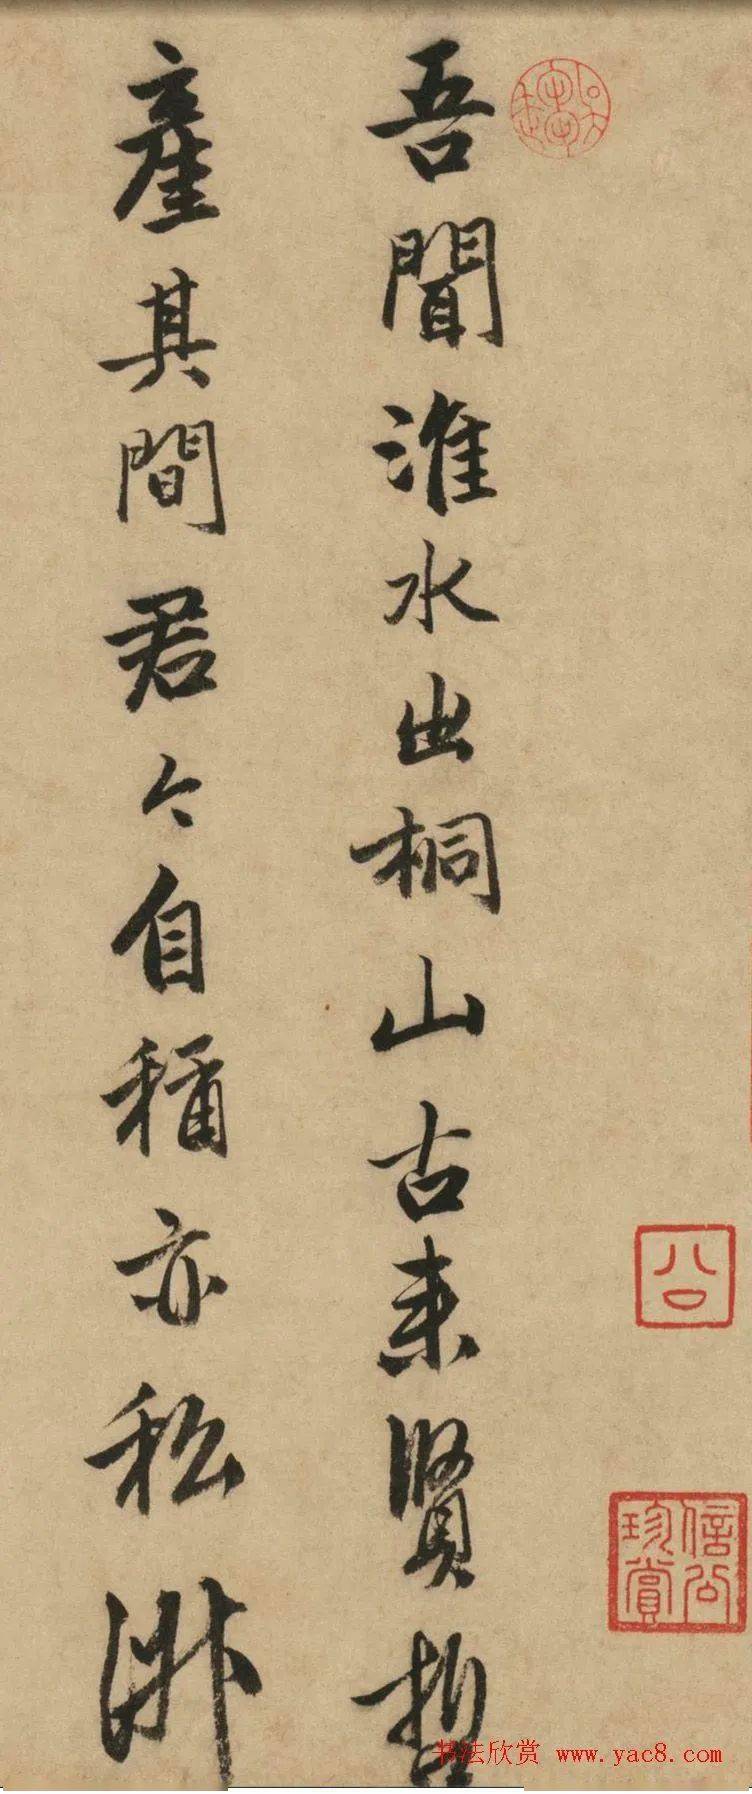 吾聞淮水出桐山古來賢哲
產其間君今自稱亦私淑
公
信公珍賞
书法欣赏 www.yac8.com